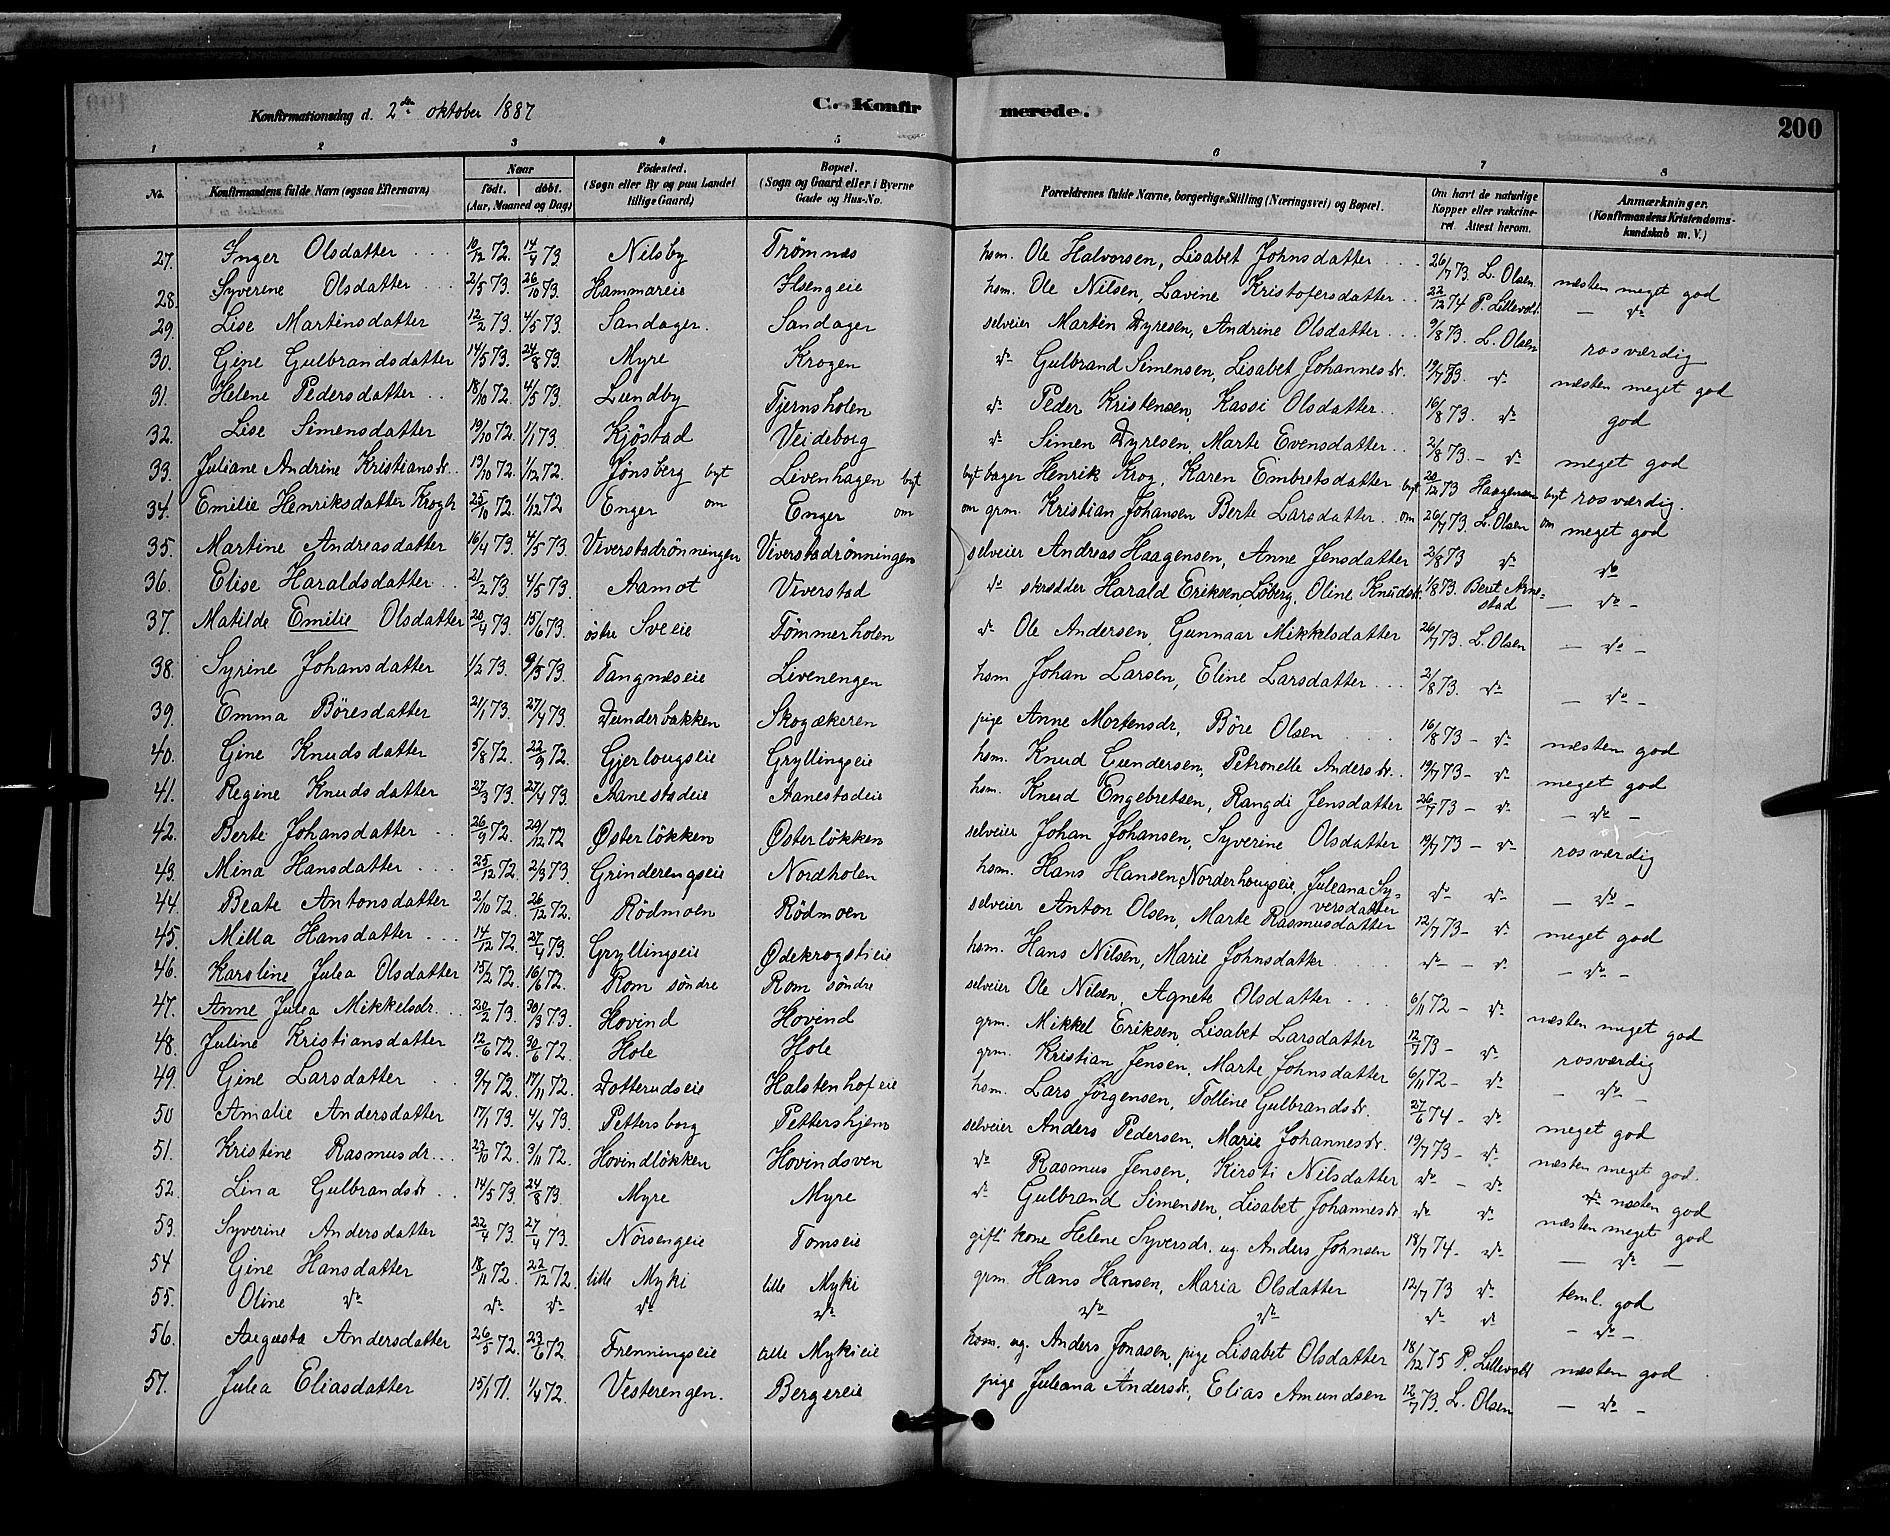 Konfirmationsdag d. 2den oktober 1887
C. Konfirmerede.
200
1 2 3 4 5 6 7 8
No. | Konfirmandens fulde Navn (ogsaa Efternavn) | Naar født. døbt. (Aar, Maaned og Dag) | Fødested. (Sogn eller By og paa Landet tillige Gaard) | Bopæl. (Sogn og Gaard eller i Byerne Gade og Hus-No. | Forældrenes fulde Navne, borgerlige Stilling (Næringsvei) og Bopæl. | Om havt de naturlige Kopper eller vakcineret. Attest herom. | Anmærkninger. (Konfirmandens Kristendomskundskab m. V.)
27. Inger Olsdatter 10/12 72. 14/4 73 Nilsby Trømnæs hsm. Ole Halvorsen, Lisabet Johnsdatter 26/7 73. L. Olsen næsten meget god
28. Syverine Olsdatter 2/5 73. 26/10 73. Hammareie Ilsengeie hsm. Ole Nilsen, Lavine Kristofersdatter 22/12 74 P. Lillevold. — do
29. Lise Martinsdatter 12/2 73. 4/5 73. Sandager. Sandager selveier Martin Dyresen, Andrine Olsdatter 9/8 73. L. Olsen rosværdig
30. Gine Gulbrandsdatter 14/5 73. 24/8 73. Myre Krogen do Gulbrand Simensen, Lisabet Johannesdr. 19/7 73. do næsten meget god
31. Helene Pedersdatter 18/10 72 4/5 73. Lundby Tjernsholen do Peder Kristensen, Kassi Olsdatter 16/8 73. do god
32. Lise Simensdatter 19/10 72. 1/1 73. Kjöstad Veideborg do Simen Dyresen, Marte Evensdatter 2/8 73. — do meget god
33. Juliane Andrine Kristiansdr. 13/10 72. 1/12 72. Jønsberg byt Livenhagen byt byt bager Henrik Krog, Karen Embretsdatter byt 20/12 73 Haagensen byt rosværdig.
34. Emilie Henriksdatter Krogh 25/10 72. 1/12 72 Enger om Enger om om grm. Kristian Johansen Berte Larsdatter om 26/7 73. L. Olsen om meget god
35. Martine Andreasdatter 16/4 73. 4/5 73. Viverstadrönningen Viverstadrönningen selveier Andreas Haagensen, Anne Jensdatter 2/8 73 do do
36. Elise Haraldsdatter 21/2 73. 4/5 73. Aamot Viverstad do skrædder Harald Eriksen Löberg, Oline Knudsdr. 1/8 73. Berit Arnestad — do —
37. Matilde Emilie Olsdatter 20/4 73. 15/6 73. östre Sveeie Tömmerholen do Ole Andersen, Gunnaar Mikkelsdatter 26/7 73. L. Olsen — do —
38. Syrine Johansdatter 1/2 73. 9/3 73. Tangnæseie Livenengen hsm Johan Larsen, Eline Larsdatter 2/8 73. do — do —
39. Emma Böresdatter 21/1 73. 27/4 73. Dunderbakken Skogækeren pige Anne Mortensdr, Böre Olsen 16/8 73 — do næsten god
40. Gine Knudsdatter 5/8 72. 22/9 72. Gjerlougseie Gryllingseie hsm. Knud Gundersen, Petronelle Andersdr. 19/7 73 — do meget god
41. Regine Knudsdatter 27/3 73. 27/4 73. Aanestadeie Aanestadeie hsm. Knud Engebretsen, Rangdi Jensdatter 26/7 73 — do — do —
42. Berte Johansdatter 26/9 72. 29/12 72 Østerlökken Østerlökken selveier Johan Johansen, Syverine Olsdatter 19/7 73 — do rosværdig
43. Mina Hansdatter 25/12 72. 2/3 73. Grinderengseie Nordholen hsm. Hans Hansen, Norderhougseie, Juleana Syversdatter do do — do —
44. Beate Antonsdatter 2/10 72. 26/12 72. Rödmoen Rödmoen selveier Anton Olsen, Marte Rasmusdatter 12/7 73 — do meget god
45. Milla Hansdatter 14/12 72. 27/4 73. Gryllingseie Ødekrogstieie hsm. Hans Nilsen, Marie Johnsdatter do — do — do —
46. Karoline Julea Olsdatter 15/2 72. 16/6 72. Rom söndre Rom söndre selveier Ole Nilsen, Agnete Olsdatter 6/11 72 — do næsten meget god
47. Anne Julea Mikkelsdr. 20/2 73. 30/3 73. Hovind Hovind grm. Mikkel Eriksen, Lisabet Larsdatter 12/7 73 — do rosværdig
48. Juline Kristiansdatter 12/6 72. 30/6 72. Hole Hole grm. Kristian Jensen, Marte Johnsdatter 6/11 72 — do — do —
49. Gine Larsdatter 9/7 72. 17/11 72. Dotterudseie Halstenhofeie hsm. Lars Jörgensen, Tolline Gulbrandsdr. 27/6 74 — do meget god
50 Amalie Andersdatter 17/1 73. 4/4 73. Pettersborg Pettershjem selveier Anders Pedersen, Marie Johannesdr. 19/7 73 — do næsten meget god.
51. Kristine Rasmusdr. 23/10 72. 3/11 72. Hovindlökken Hovindsven do Rasmus Jensen, Kirsti Nilsdatter do — do næsten god
52. Lina Gulbrandsdr. 14/5 73. 24/8 73. Myre Myre do Gulbrand Simensen, Lisabet Johannesdr. do do næsten meget god
53. Syverine Andersdatter 22/4 73. 27/4 73. Nörsengeie Tomseie gift kone Helene Syversdr. ug. Anders Johnsen 18/7 74 — do — do —
54 Gine Hansdatter 18/11 72. 22/12 72. lille Myki lille Myki grm. Hans Hansen, Maria Olsdatter 12/7 73 do teml. god
55. Oline do do do do do do do do do — do —
56. Augusta Andersdatter 26/5 72. 23/6 72. Frenningseie lille Mykieie hsm. ug. Anders Jonasen, pige Lisabet Olsdatter 18/12 75 P. Lillevold næsten god
57. Julea Eliasdatter 15/1 71. 1/4 72. Vesterengen. Bergereie pige Juleana Andersdr., Elias Amundsen 12/7 73. L. Olsen — do —